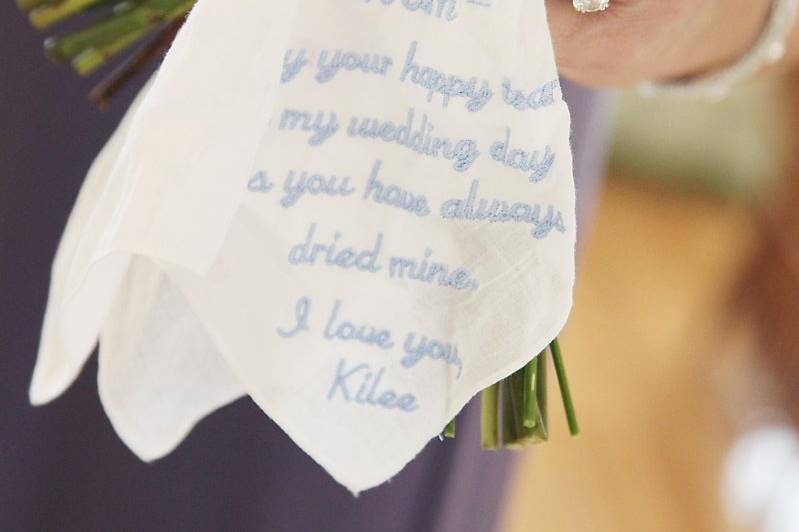 y your happy
my wedding day
s you have always
dried mine.
I love you,
Kilee